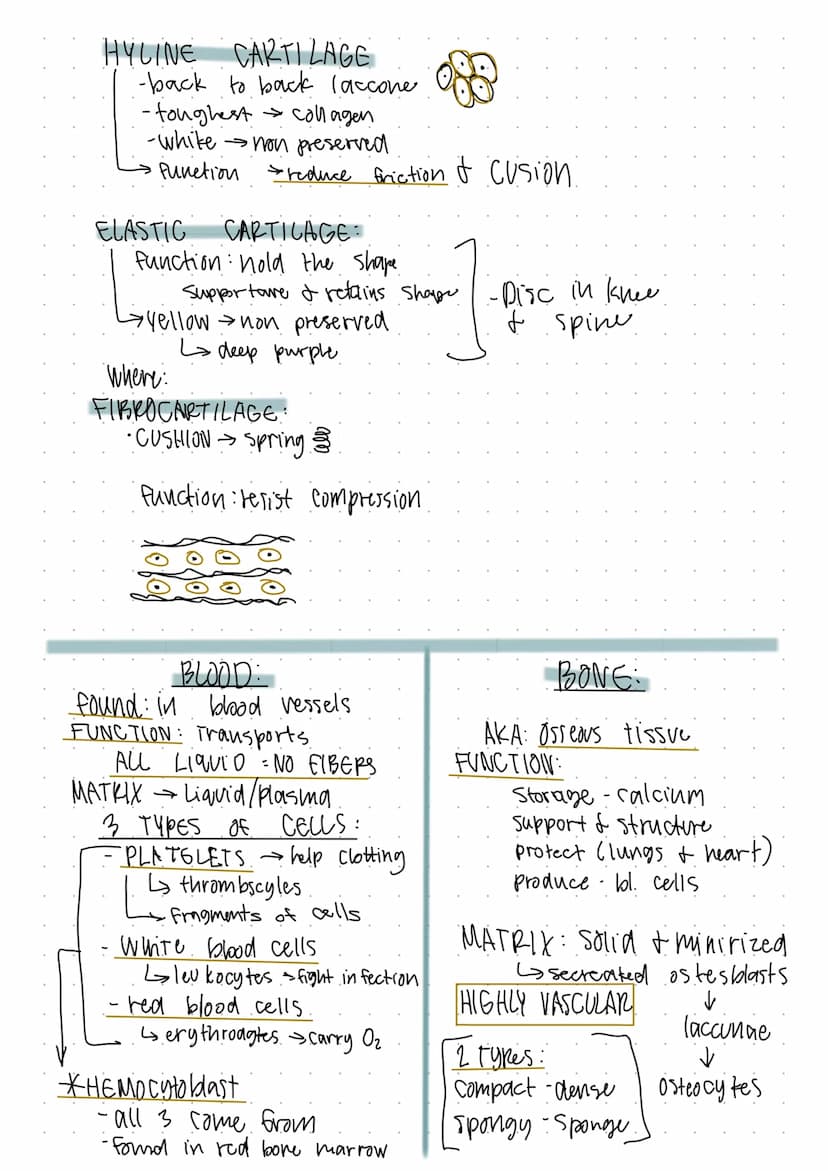 HYLINE CARTILAGE
-back to back laccone
-toughest → collagen
-white → non preserved
→ function → reduce friction & CUSION
ELASTIC CARTILAGE:
function: hold the shape
supportame & retains shape
→ yellow → non preserved
↳ deep purple
-Disc in knee
& spine
Where:
FIBROCARTILAGE:
·CUSHION → spring
function: resist compression
BLOOD:
found: in blood vessels
FUNCTION: Transports
ALL LIQUID = NO FIBERS
MATRIX → Liquid/plasma
3 TYPES OF CELLS:
- PLATELETS → help clotting
↳ thrombscyles
↳ fragments of cells
- White blood cells
↳ leukocytes → fight infection
- red blood cells
↳ erythroagtes → carry O2
*HEMOCytoblast
- all 3 come from
- found in red bone marrow
BONE:
AKA: Osseous tissue
FUNCTION:
Storage - calcium
support & structure
protect (lungs & heart)
produce - bl. cells
MATRIX: Solid & minirized
↳ secreated ostesblasts
↓
HIGHLY VASCULAR
laccunae
↓
osteocytes
2 types:
compact - dense
spongy - sponge